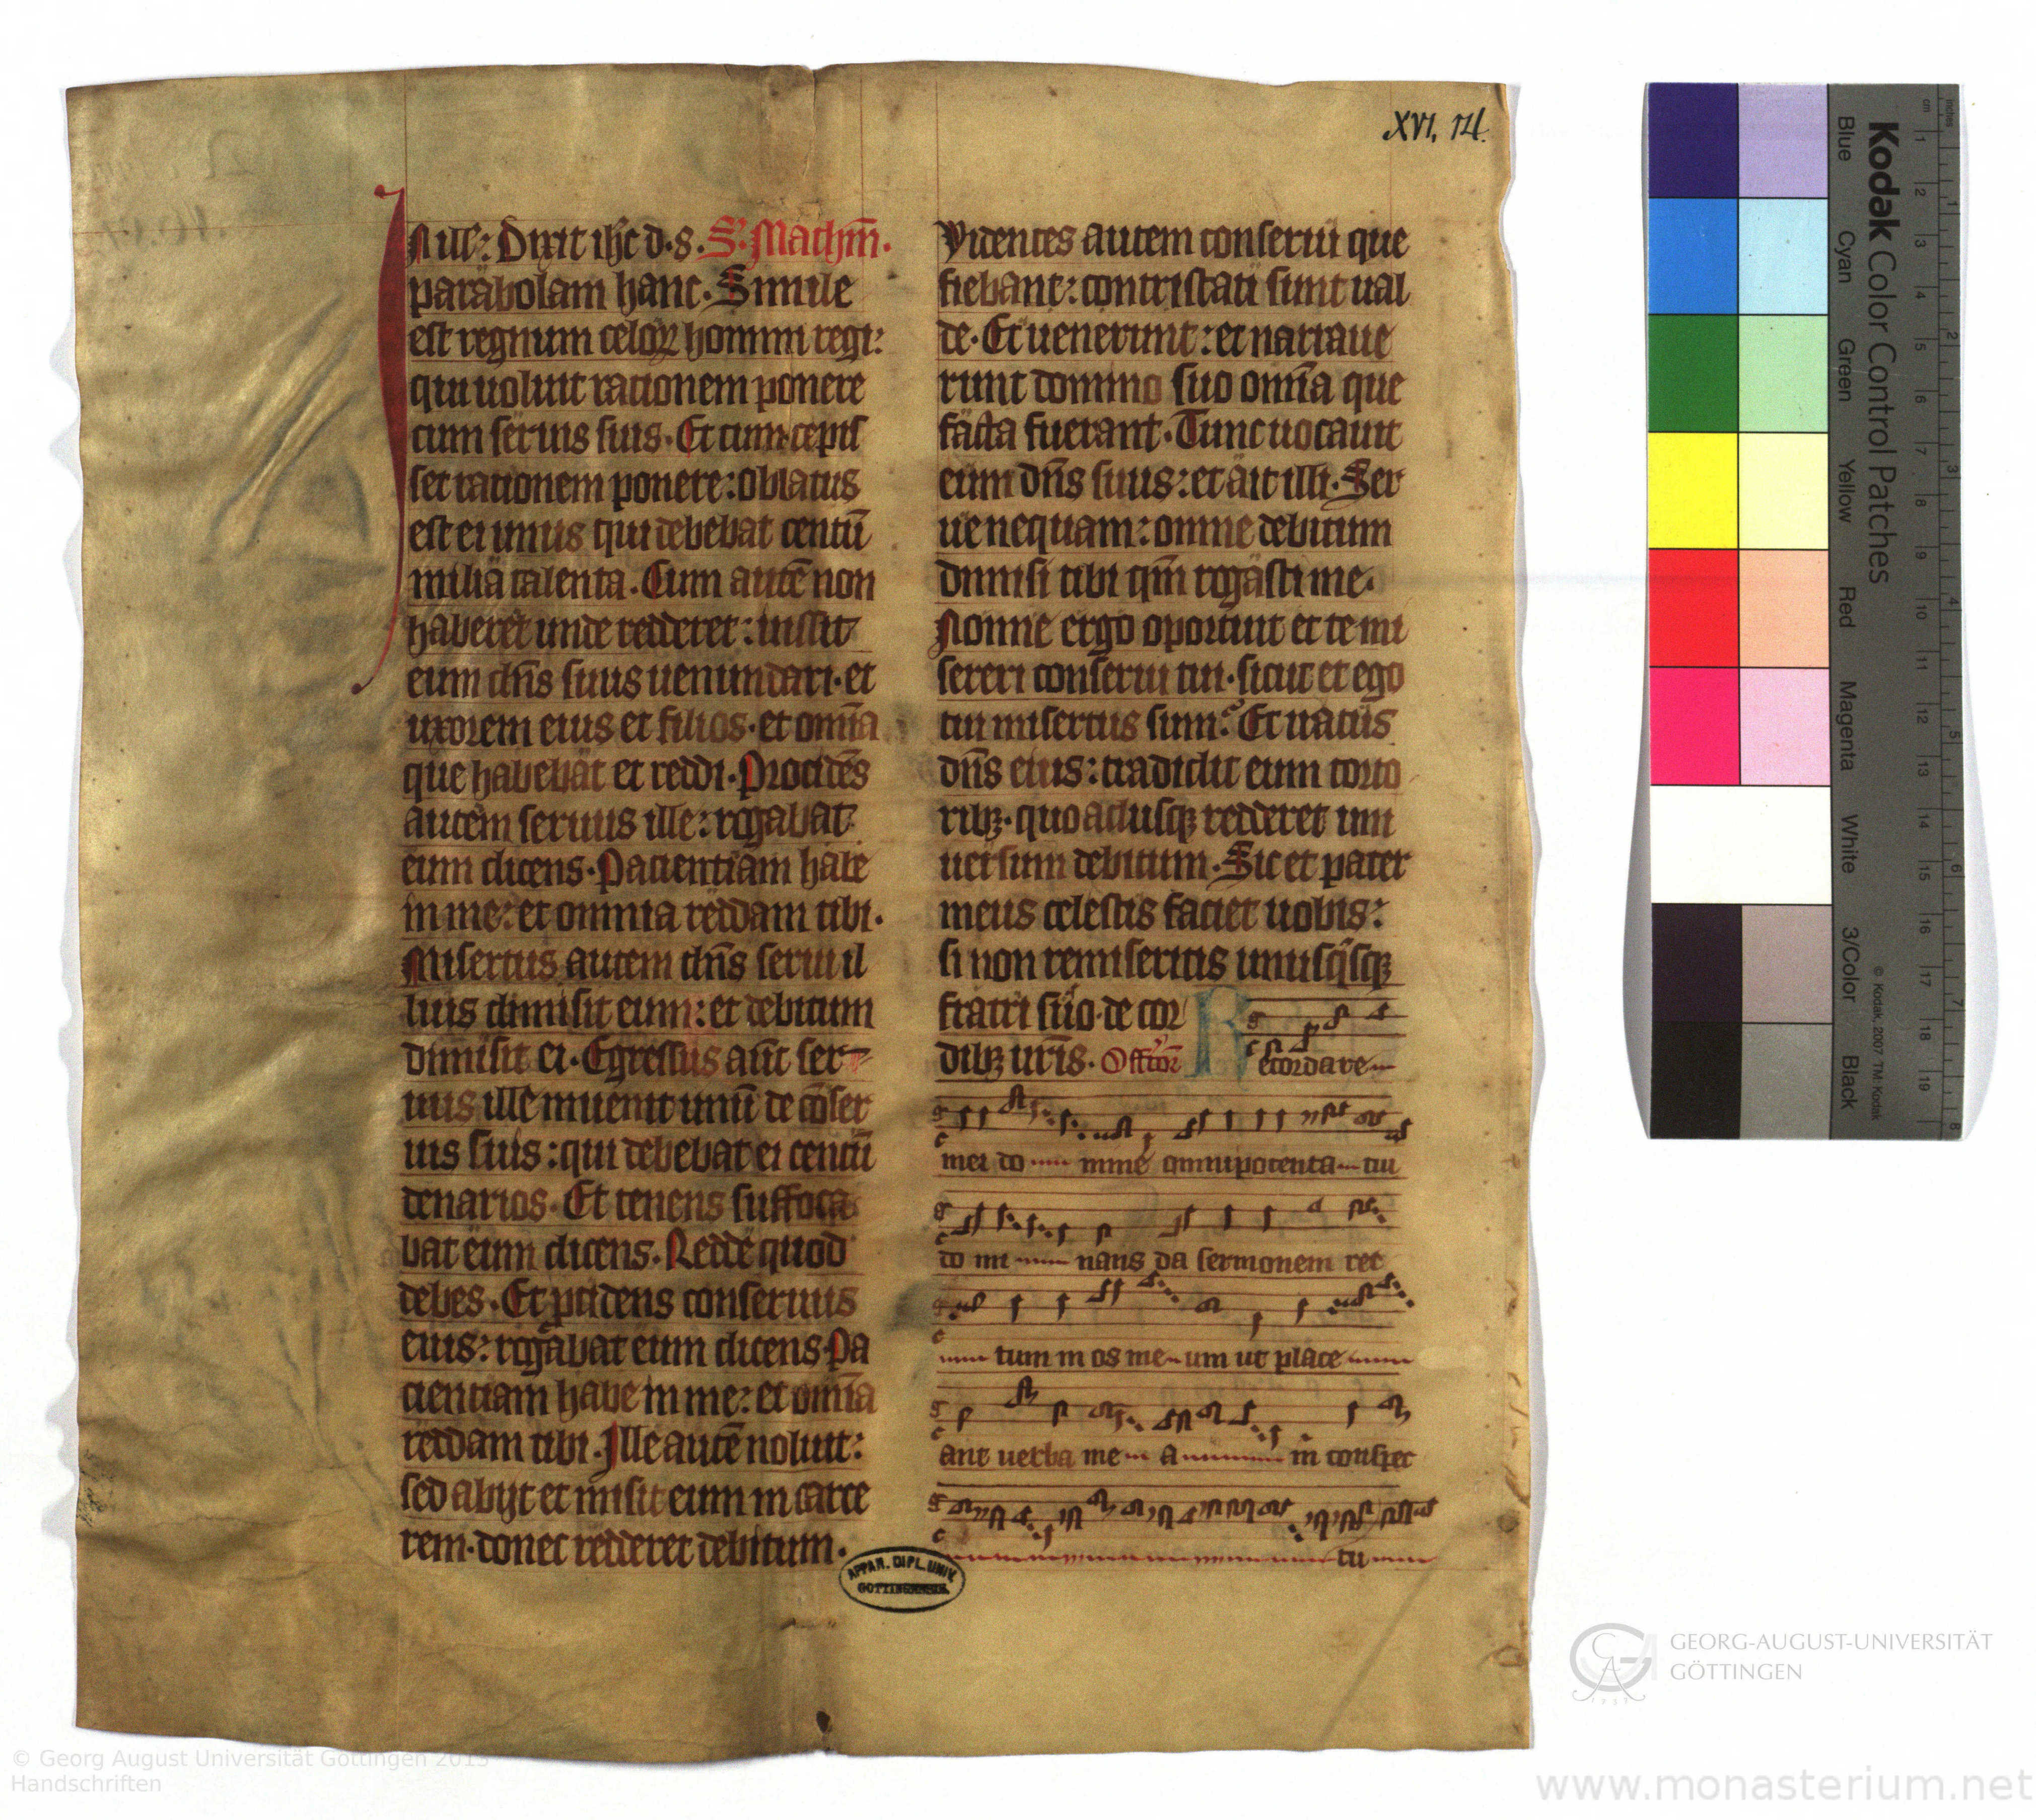 XVI, 14.
In ill': Dixit ihc d. s. S. Mathm̄.
parabolam hanc. Simile
est regnum celoꝝ homini regi:
qui uoluit rationem ponere
cum seruis suis. Et cum cepis
set rationem ponere: oblatus
est ei unus qui debebat centū
milia talenta. Cum autē non
haberet unde redderet: iussit
eum dn̄s suus uenundari. et
uxorem eius et filios. et om̄ia
que habebat et reddi. Procidēs
autem seruus ille: rogabat
eum dicens. Pacientiam habe
in me: et omnia reddam tibi.
Misertus autem dn̄s serui il
lius dimisit eum: et debitum
dimisit ei. Egressus aūt ser
uus ille inuenit unū de cōser
uis suis: qui debebat ei centū
denarios. Et tenens suffoca
bat eum dicens. Redde quod
debes. Et ꝓcidens conseruus
eius: rogabat eum dicens. Pa
cientiam habe in me: et om̄ia
reddam tibi. Ille autē noluit:
sed abijt et misit eum in carce
rem. donec redderet debitum.
Videntes autem conserui que
fiebant: contristati sunt ual
de. Et uenerunt: et narraue
runt domino suo om̄ia que
facta fuerant. Tunc uocauit
eum dn̄s suus: et ait illi. Ser
ue nequam: omne debitum
dimisi tibi qm̄ rogasti me.
Nonne ergo oportuit et te mi
sereri conserui tui. sicut et ego
tui misertus sum? Et iratus
dn̄s eius: tradidit eum torto
ribꝫ. quo adusqꝫ redderet uni
uersum debitum. Sic et pater
meus celestis faciet uobis:
si non remiseritis unusqⁱsqꝫ
fratri suo. de cor
dibꝫ ur̄is. Offitor̄ Recordare
mei do mine omnipotenta tui
do mi nans da sermonem rec
tum in os me um ut place
ant uerba me a in conspec
tu
APPAR. DIPL. UNIV.
GOTTINGENSIS.
Kodak Color Control Patches
Blue Cyan Green Yellow Red Magenta White 3/Color Black
© Kodak, 2007 TM: Kodak
cm 1 2 3 4 5 6 7 8 9 10 11 12 13 14 15 16 17 18 19
inches 1 2 3 4 5 6 7 8
GEORG-AUGUST-UNIVERSITÄT
GÖTTINGEN
© Georg August Universität Göttingen 2013
Handschriften
www.monasterium.net